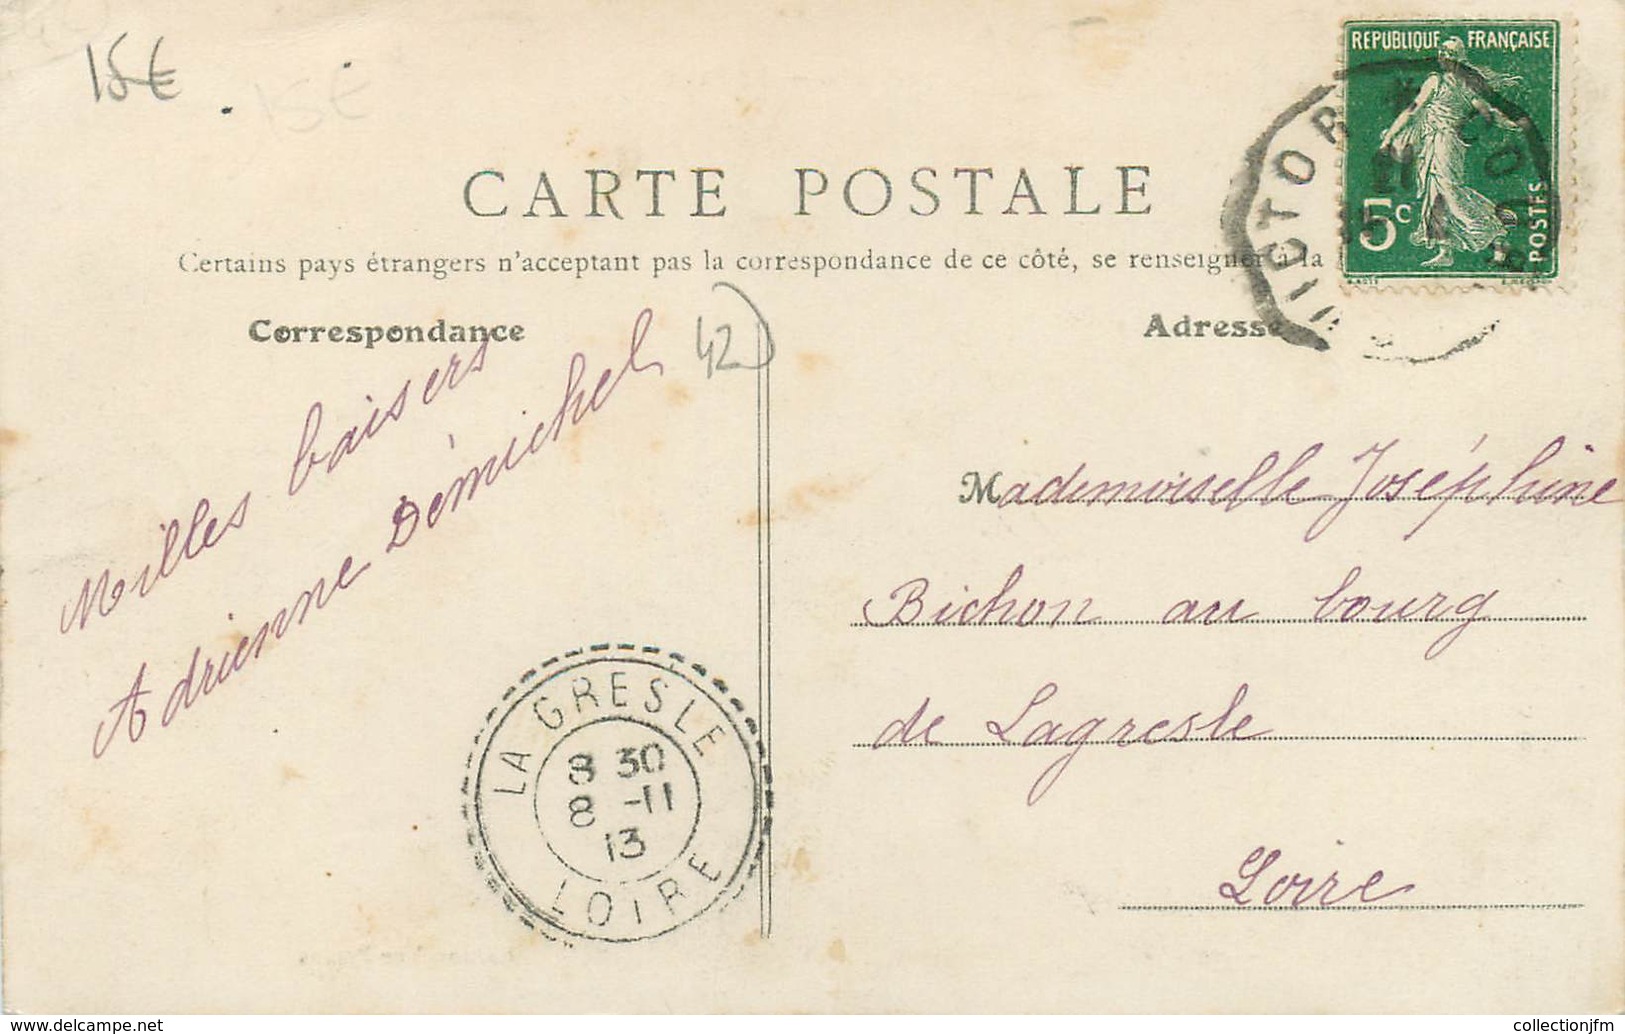 15€
15€
REPUBLIQUE FRANÇAISE
5c
POSTES
VICTOR
COURS
CARTE POSTALE
Certains pays étrangers n'acceptant pas la correspondance de ce côté, se renseigner à la
Correspondance
Adresse
42
Milles baisers
Adrienne Démichel
Mademoiselle Joséphine
Bichon au bourg
de Lagresle
Loire
LA GRESLE
8 30
8 -11
13
LOIRE
www.delcampe.net
collectionjfm